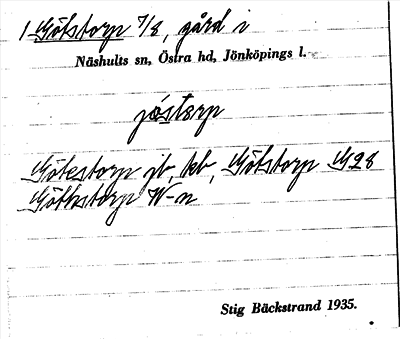 1 Götstorp 7/8, gård i
Näshults sn, Östra hd, Jönköpings l.
jöstɛrp
Götestorp jb, kb, Götstorp G28
Göthstorp W-n
Stig Bäckstrand 1935.